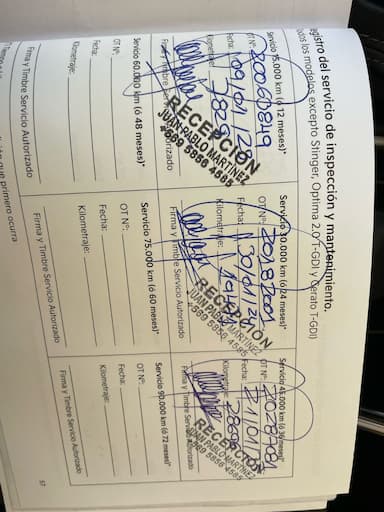 egistro del servicio de inspección y mantenimiento.
odos los modelos excepto Stinger, Optima 2.0 T-GDI y Cerato T-GDI)
Servicio 15.000 km (ó 12 meses)*
OT N°:
Fecha: 09/01/
Kilometraje:
Firma y Timbre Servicio Autorizado
RECEPCIÓN
JUAN PABLO MARTÍNEZ
+569 5856 4585
Servicio 30.000 km (ó 24 meses)*
OT N°:
Fecha: 30/01/
Kilometraje:
Firma y Timbre Servicio Autorizado
RECEPCIÓN
JUAN PABLO MARTÍNEZ
+569 5856 4585
Servicio 45.000 km (ó 36 meses)*
OT N°:
Fecha:
Kilometraje:
Firma y Timbre Servicio Autorizado
RECEPCIÓN
JUAN PABLO MARTÍNEZ
+569 5856 4585
Servicio 60.000 km (ó 48 meses)*
OT N°:
Fecha:
Kilometraje:
Firma y Timbre Servicio Autorizado
Servicio 75.000 km (ó 60 meses)*
OT N°:
Fecha:
Kilometraje:
Firma y Timbre Servicio Autorizado
Servicio 90.000 km (ó 72 meses)*
OT N°:
Fecha:
Kilometraje:
Firma y Timbre Servicio Autorizado
que primero ocurra
57